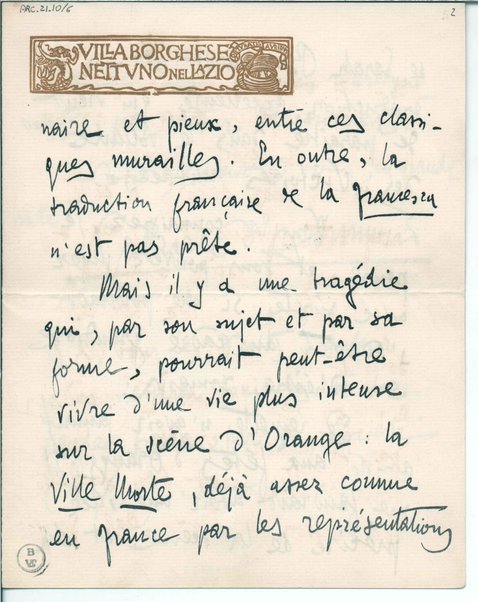 ARC.21.10/6
2
VILLA BORGHESE
NETTVNO NEL LAZIO
naire et pieux, entre ces classi-
ques murailles. En outre, la
traduction française de la francesca
n'est pas prête.
Mais il y a une tragédie
qui, par son sujet et par sa
forme, pourrait peut-être
vivre d'une vie plus intense
sur la scène d'Orange : la
Ville Morte, déjà assez connue
en france par les représentations